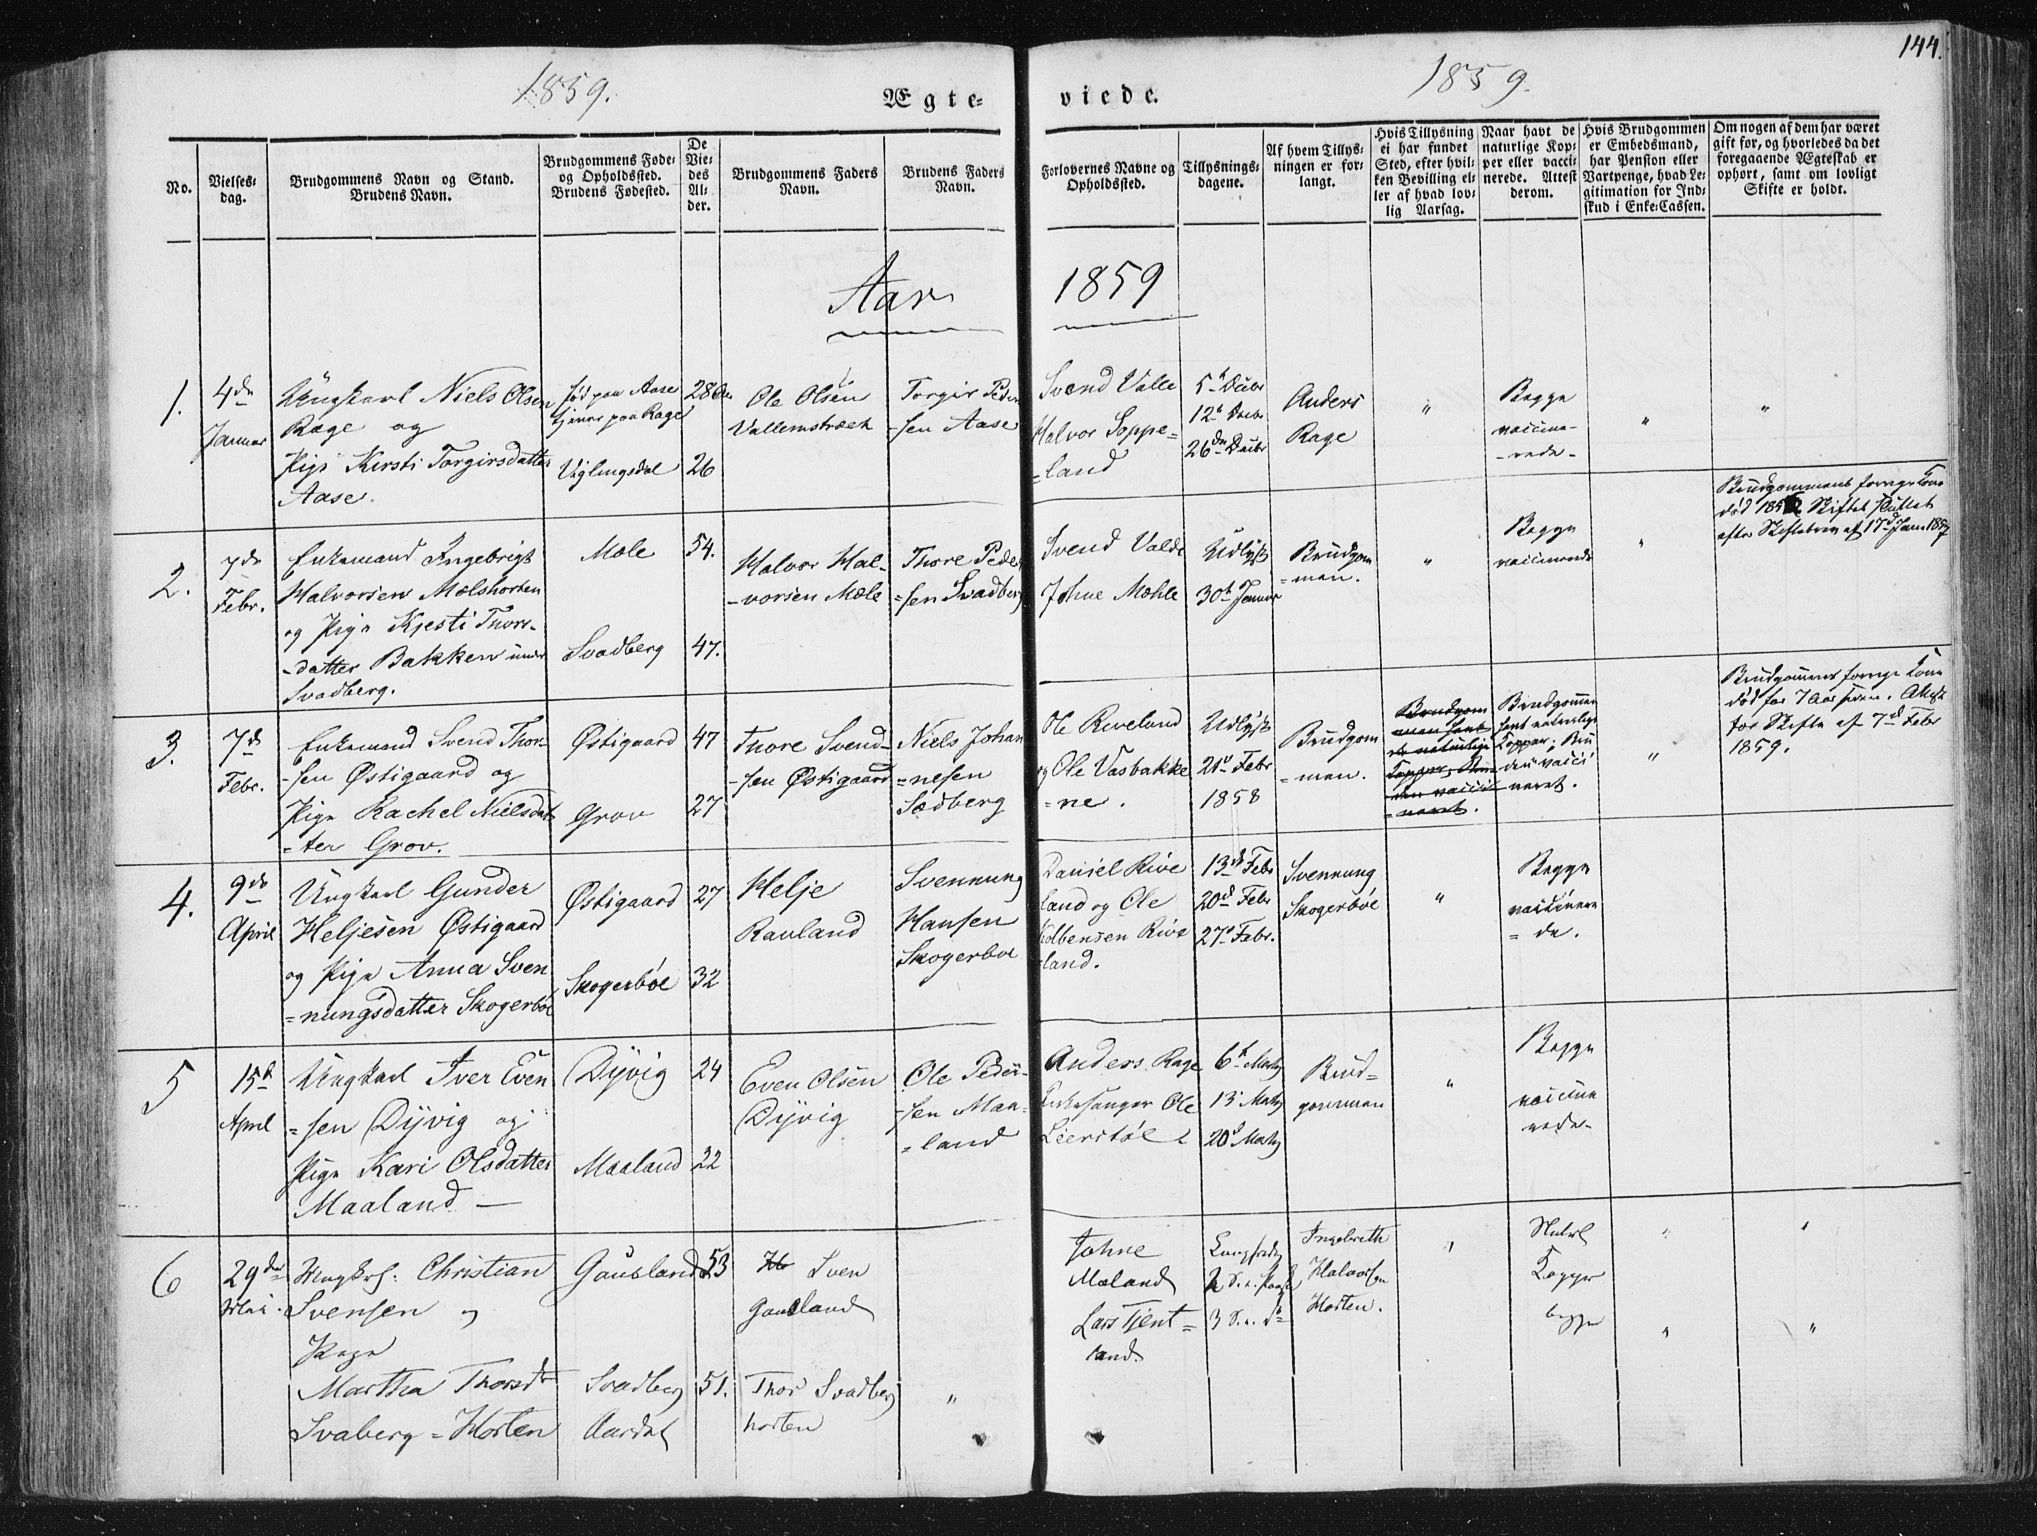 144.
1859.
1859.
Ægte-
viede.
No.
Vielses-
dag.
Brudgommens Navn og Stand.
Brudens Navn.
Brudgommens Føde-
og Opholdssted.
Brudens Fødested.
De
Vie-
des
Al-
der.
Brudgommens Faders
Navn.
Brudens Faders
Navn.
Forlovernes Navne og
Opholdssted.
Tillysnings-
dagene.
Af hvem Tillys-
ningen er for-
langt.
Hvis Tillysning
ei har fundet
Sted, efter hvil-
ken Bevilling el-
ler af hvad lov-
lig Aarsag.
Naar havt de
naturlige Kop-
per eller vacci-
nerede. Attest
derom.
Hvis Brudgommen
er Embedsmand,
har Pension eller
Vartpenge, hvad Le-
gitimation for Ind-
skud i Enke-Cassen.
Om nogen af dem har været
gift før, og hvorledes da det
foregaaende Ægteskab er
ophørt, samt om lovligt
Skifte er holdt.
Aar
1859
1.
4de
Januar
Ungkarl Niels Olsen
Rage og
Pige Kersti Torgirsdatter
Aase.
født paa Aase
tjener paa Rage
Uglingsdal
28
26
Ole Olsen
Torgir Peder
-sen Aase
Svend Valle
Halvor Soppe=
=land
5t Decbr
12t Decbr
26de Decbr
Anders
Rage
"
Begge
vaccine-
-rede-
"
"
2.
7de
Febr.
Enkemand Ingebrigt
Halvorsen Mælshorten
og Pige Kjesti Thors-
-datter Bakken under
Svadberg.
Mæle
Svadberg
54.
47.
Halvor Hal-
-vorsen Mæle
Thore Peder
=sen Svadberg
Svend Valde
Johne Mæhle
Udlyst
30t Januar
Brudgom
=men.
"
Begge
vaccinerede
"
Brudgommens forrige Kone
død 185 Skiftet sluttet
efter Skiftebrev af 17d Jan. 1857
3.
7d
Febr.
Enkemand Svend Thor-
-sen Østigaard og
Pige Rachel Nielsdat
=ter Grov.
Østigaard
Grov
47
27
Thore Svend-
-sen Østigaard
Niels Johan
=nesen
Sædberg
Ole Riveland
og Ole Vasbakke
=ne.
Udlyst
21d Febr
1858
Brudgom
=men.
Brudgom
men havt
de naturlige
Kopper, Bru
den vacci
=neret.
Brudgommen
havt naturlige
Kopper, Bru
den vacci
neret.
"
Brudgommens forrige Kone
død for 7 Aar siden. Attest
for Skifte af 7d Febr
1859.
4.
9de
April
Ungkarl Gunder
Heljesen Østigaard
og Pige Anna Sven
=nungsdatter Skogerbøe
Østigaard
Skogerbøe
27
32
Helje
Rauland
Svennung
Hansen
Skogerboe
Daniel Rive
land og Ole
Kolbensen Rive
=land.
13de Febr
20d Febr
27d Febr.
Svennung
Skogerbøe
"
Begge
vaccinere
=de.
5
15t
April
Ungkarl Iver Even
=sen Dyvig og
Pige Kari Olsdatter
Maaland —
Dyvig
Maaland
24
22
Even Olsen
Dyvig
Ole Peder-
-sen Maa-
=land
Anders Rage
Kirkesanger Ole
Leirstøl
6t Marts
13 Marts
20d Marts
Brud=
gommen
"
Begge
vaccine
rede-
6
29de
Mai.
Ungkrl: Christian
Svensen og
Pige
Martha Thorsdr
Svaberg = Horten
Gausland
Svadberg
Aardal
53
51.
Sven
Gausland
Thor Svadberg
horten
"
Johne
Mæland
Lars Tjent=
land.
Langfredag
2
3
Ingebreth
Halvorsen
Horten.
"
Naturl
Kopper
begge
"
"
"
"